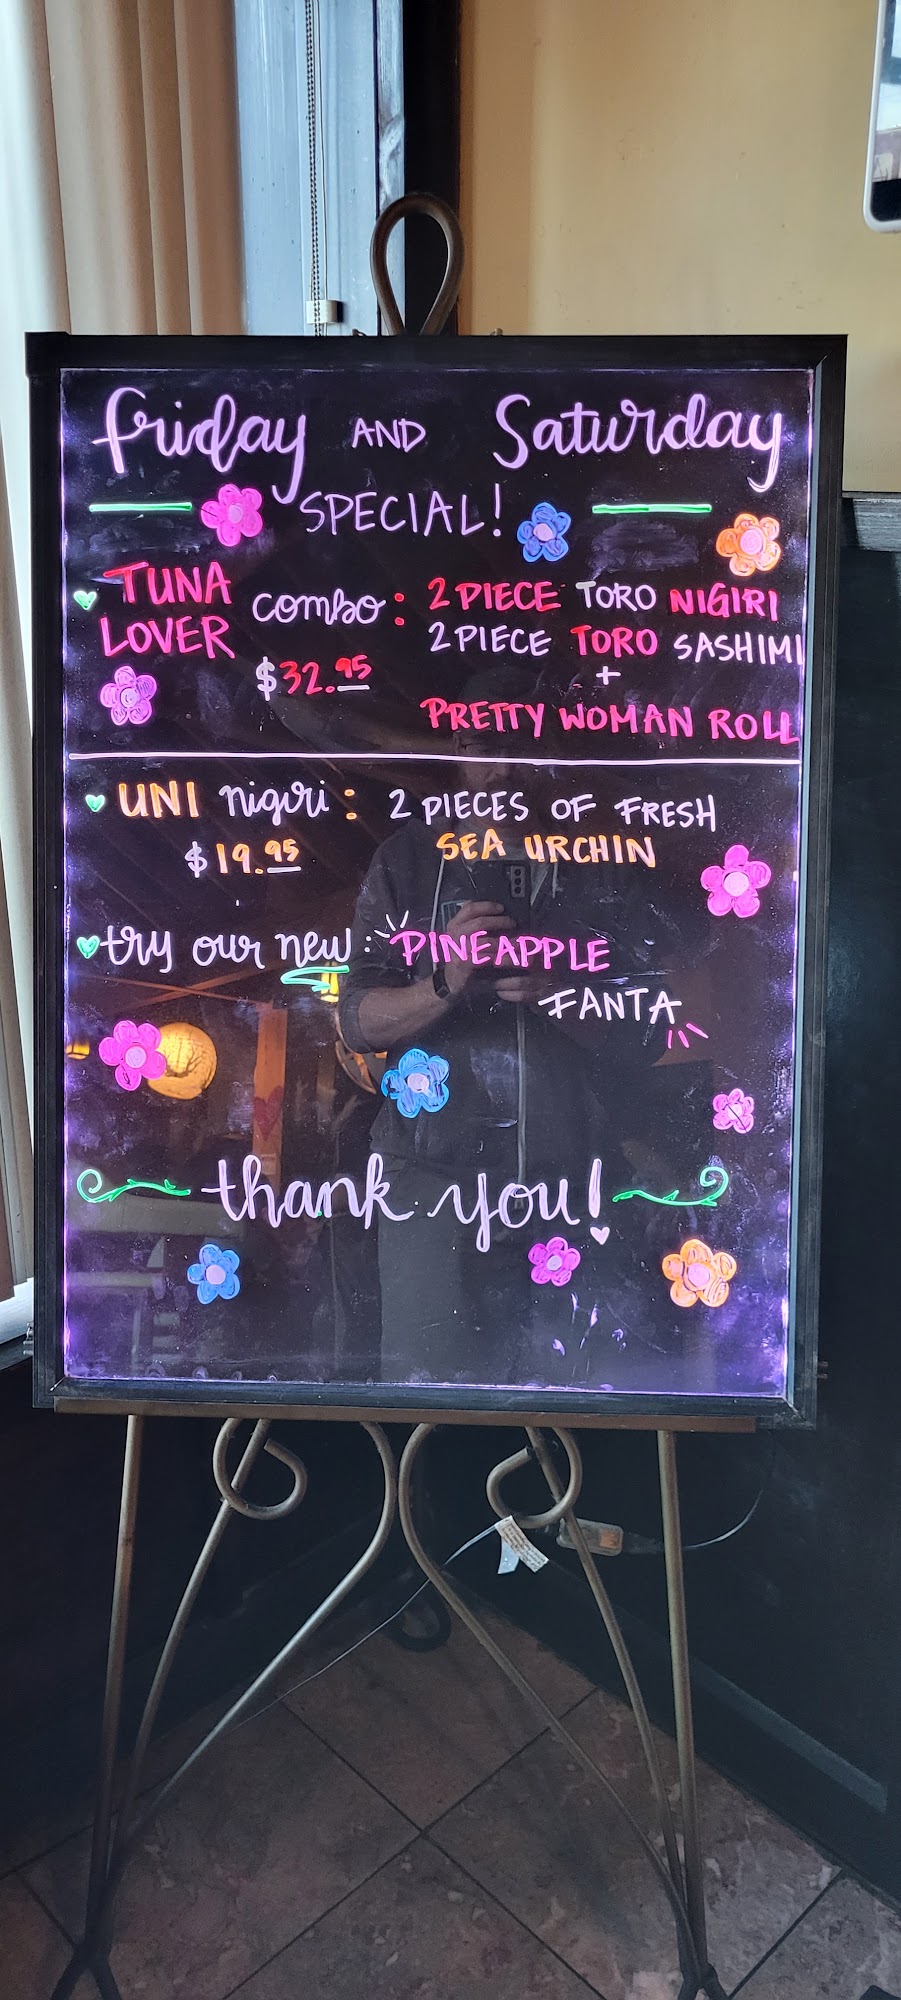 friday AND Saturday
SPECIAL!
TUNA LOVER combo: 2 PIECE TORO NIGIRI
2 PIECE TORO SASHIMI
+
$32.95
PRETTY WOMAN ROLL
UNI nigiri: 2 PIECES OF FRESH
$19.95 SEA URCHIN
try our new: PINEAPPLE
FANTA
thank you!